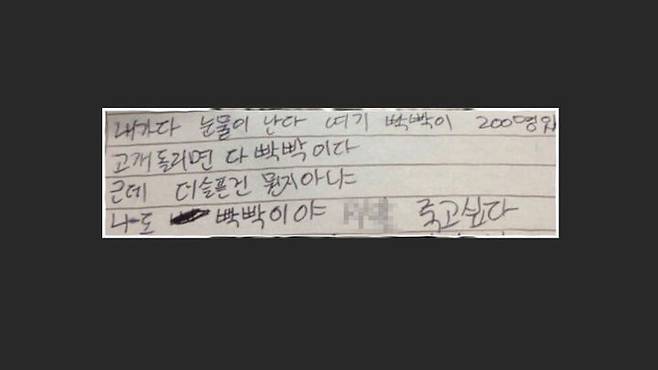 내가다 눈물이 난다 여기 빡빡이 200명있
고개돌리면 다 빡빡이다
근데 더슬픈건 뭔지아냐
나도 빡빡이야 죽고싶다